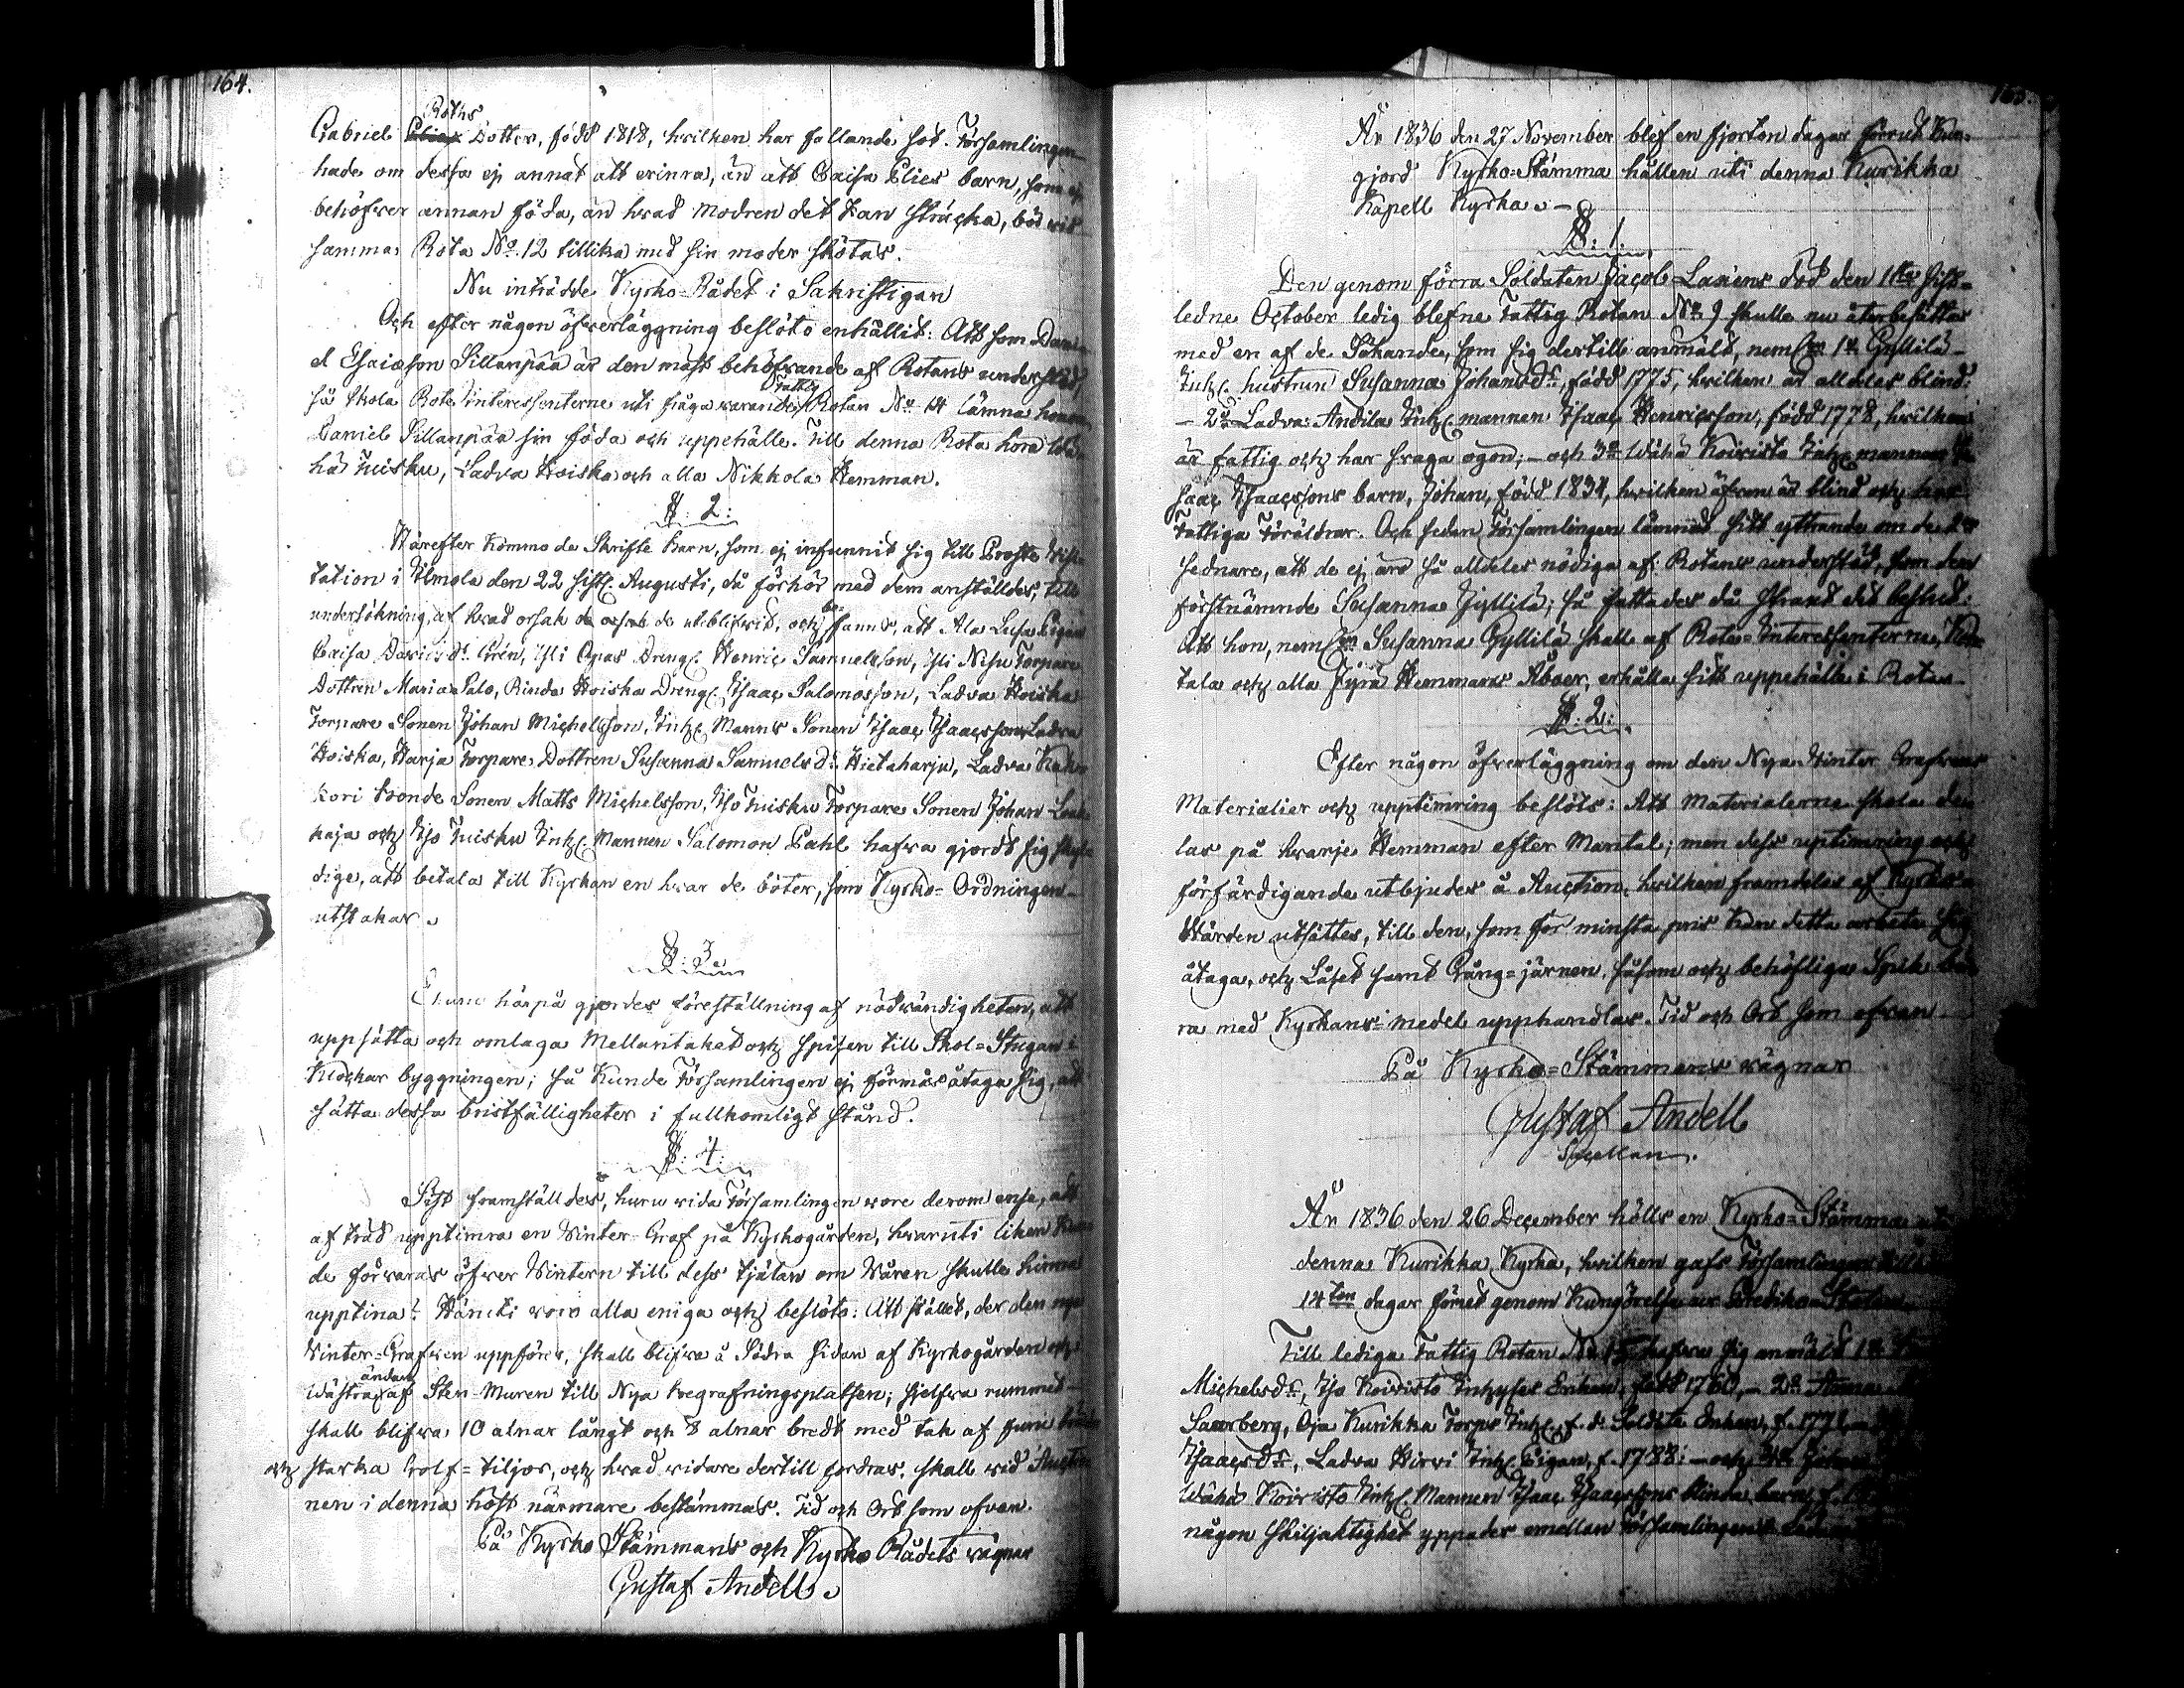 164.
Roths
Gabriel Elias Dotter, född 1818, hvilken har fallande sot. Församlingen
hade om dessa ej annat att erinra, än att Caisa Elies barn, som ej
behöfver annan föda, än hvad modren det kan sträcka, bör vid
samma Rota No. 12 tillika med sin moder skötas.
Nu inträdde Kyrko-Rådet i Sakristigan
Och efter någon öfverläggning beslöts enhällit: Att som Dani-
el Esaiæson Sillanpää är den mäst behöfvande af Rotans understöd,
fattig
så skola Rote interessenterne uti fråga varande Rotan No 14 lämna honom
Daniel Sillanpää sin föda och uppehälle. Till denna Rota höra Wä-
hä Juisku, Ladva Hoiska och alla Nikkola Hemman.
§: 2:
Härefter kommo de Skrifte Barn, som ej infunnit sig till Prosts Visi-
tation i Ilmola den 22 sistl. Augusti, då förhör med dem anställdes, till
be-
undersökning, af hvad orsak de uteblifvit, och fanns, att Ala Lusa Pigan
Caisa Davidsdr. Grén, Yli Ojas Dreng. Henric Samuelsson, Yli Nisu Torpare
Dottren Maria Palo, Rinda Hoiska Dreng. Isaac Salomosson, Ladva Hoiska
Torpare Sonen Johan Michelsson, Inh. Manns Sonen Isaac Isaacsson Ladva
Hoiska, Harja Torpare Dottren Susanna Samuelsdr. Hietaharju, Ladva
kori bonde Sonen Matts Michelsson, Iso Juisku Torpare Sonen Johan
kaja och Iso Juisku Inh. Mannen Salomon Pahl hafva gjordt sig skyl-
dige, att betala till Kyrkan en hvar de böter, som Kyrko-Ordningen
utstakar.
§: 3.
Ännu härpå gjordes föreställning af nödvändigheten, att
uppsätta och omlaga Mellantaket och spisen till Skol-Stugan i
Klockar byggningen; så kunde Församlingen ej förmås åtaga sig, att
sätta dessa bristfälligheter i fullkomligt stånd.
§: 4.
Sist framställdes, huru vida Församlingen vore derom ense, att
af träd upptimra en Vinter-Graf på Kyrkogården, hvaruti liken kun-
de förvaras öfver Vintern till dess tjälan om Våren skulle hinna
upptina? Häruti voro alla eniga och beslöts: Att stället, der den nya
Vinter-Grafven uppföres, skall blifva å Södra sidan af Kyrkogården och
ändan
Wästra af Sten-Muren till Nya begrafningsplatsen; sjelfva rummet
skall blifva 10 alnar långt och 8 alnar bredt med tak af furu bräder
och starka Golf-tiljor, och hvad vidare dertill fordras, skall vid Auctio-
nen i denna höst närmare bestämmas. Tid och Ort som ofvan.
På Kyrko Stämmans och Kyrko Rådets vägnar
Gustaf Andell.
165.
År 1836 den 27 November blef en fjorton dagar förrut kun-
gjord Kyrko-Stämma hållen uti denna Kurikka
Kapell Kyrka.
§: 1.
Den genom förra Soldaten Jacob Laxéns död den 11te sist-
ledne October ledig blefne Fattig Rotan No 9 skulle nu återbesättas
med en af de Sökande, som sig dertill anmält, neml. 1o Gyllilä
Inh. hustrun Susanna Johansdr., född 1775, hvilken är alldeles blind;
2o Ladva Andila Inh. mannen Isaac Henricsson, född 1778, hvilken
är fattig och har svaga ögon; och 3o Wähä Koivisto Inh. mannen I-
saac Isaacssons barn, Johan, född 1834, hvilken äfven är blind och har
Fattiga Föräldrar. Och sedan Församlingen lämnat sitt yttrande om de
sednare, att de ej äro så alldeles nödiga af Rotans understöd, som den
förstnämnde Susanna Gyllilä; så fattades då strax det beslut:
Att hon, neml. Susanna Gyllilä skall af Rote-Interessenterne,
tala och alla Jyrä Hemmans Åboer, erhålla sitt uppehälle i Rotan.
§: 2:
Efter någon öfverläggning om den Nya Vinter Grafvens
Materialier och upptimring beslöts: Att Materialerna skola de-
las på hvarje Hemman efter Mantal; men dess uptimring och
förfärdigande utbjudes å Auction, hvilken framdeles af Kyrko-
Värden utsättes, till den, som för minsta pris kan detta arbete sig
åtaga, och Låset samt Gång-järnen, såsom och behöfliga Spik bö-
ra med Kyrkans medel upphandlas. Tid och Ort som ofvan.
På Kyrko-Stämmans vägnar
Gustaf Andell
Sacellan.
År 1836 den 26 December hölls en Kyrko-Stämma uti
denna Kurikka Kyrka, hvilken gafs Församlingen till
14ton dagar förut genom Kungörelse ur Predikostolen
Till lediga Fattig Rotan No hafva sig anmält 1o
Michelsdr., Iso Koivisto Inhyses Enkan, född 1760, 2o Anna
Saarberg, Oja Kurikka Torps Inh. f. d. Soldats Enkan, f. 1771
Isaacsdr., Ladva Hirvi Inh. Pigan, f. 1788; och 4o Johan
Wähä Koivisto Inh. Mannen Isaac Isaacssons blinda barn, f.
någon skiljaktighet yppades emellan Församlingens